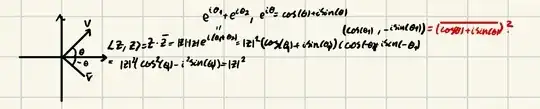 e^{iθ₁}+e^{iθ₂}, e^{iθ}=cos(θ)+isin(θ)
(cos(θ), -isin(θ)) = \overline{(cos(θ)+isin(θ))}?
V
θ
-θ
\overline{V}
⟨Z, Z⟩=Z·\overline{Z}=|Z||Z|e^{i(θ₁+θ₂)}=|Z|²(cos(θ)+isin(θ))(cos(-θ)+isin(-θ))
=|Z|²(cos²(θ)-i²sin(θ))=|Z|²